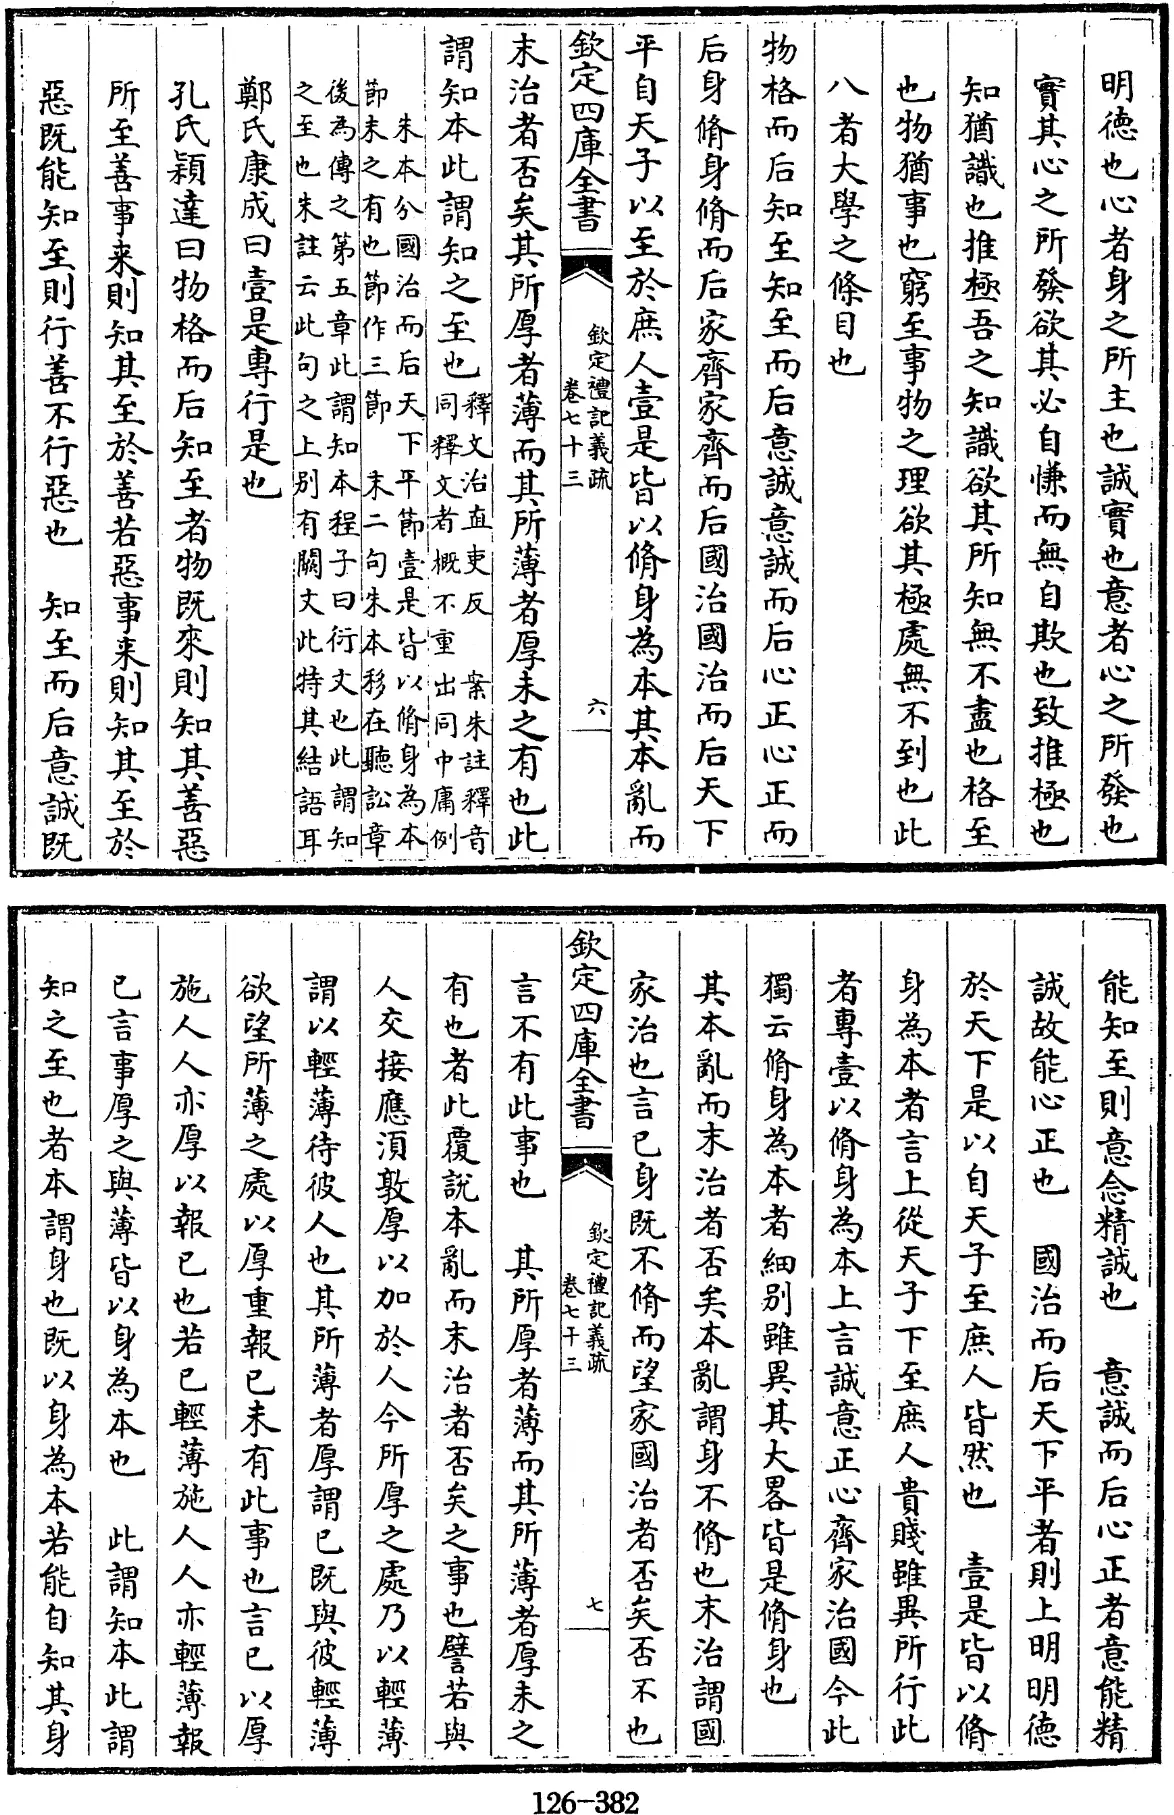 明徳也心者身之所主也誠實也意者心之所發也
實其心之所發欲其必自慊而無自欺也致推極也
知猶識也推極吾之知識欲其所知無不盡也格至
也物猶事也窮至事物之理欲其極處無不到也此
八者大學之條目也
物格而后知至知至而后意誠意誠而后心正心正而
后身脩身脩而后家齊家齊而后國治國治而后天下
平自天子以至於庶人壹是皆以脩身為本其本亂而
欽定四庫全書
欽定禮記義疏
卷七十三
六
末治者否矣其所厚者薄而其所薄者厚未之有也此
謂知本此謂知之至也
釋文治直吏反 案朱註釋音
同釋文者概不重出同中庸例
朱本分國治而后天下平節壹是皆以脩身為本
節末之有也節作三節 末二句朱本移在聽訟章
後為傳之第五章此謂知本程子曰衍文也此謂知
之至也朱註云此句之上别有闕文此特其結語耳
鄭氏康成曰壹是專行是也
孔氏穎達曰物格而后知至者物既來則知其善惡
所至善事来則知其至於善若惡事来則知其至於
惡既能知至則行善不行惡也 知至而后意誠既
能知至則意念精誠也 意誠而后心正者意能精
誠故能心正也 國治而后天下平者則上明明德
於天下是以自天子至庶人皆然也 壹是皆以脩
身為本者言上從天子下至庶人貴賤雖異所行此
者專壹以脩身為本上言誠意正心齊家治國今此
獨云脩身為本者細别雖異其大畧皆是脩身也
其本亂而末治者否矣本亂謂身不脩也末治謂國
家治也言已身既不脩而望家國治者否矣否不也
欽定四庫全書
欽定禮記義疏
卷七十三
七
言不有此事也 其所厚者薄而其所薄者厚未之
有也者此覆說本亂而末治者否矣之事也譬若與
人交接應須敦厚以加於人今所厚之處乃以輕薄
謂以輕薄待彼人也其所薄者厚謂已既與彼輕薄
欲望所薄之處以厚重報已未有此事也言已以厚
施人人亦厚以報已也若已輕薄施人人亦輕薄報
已言事厚之與薄皆以身為本也 此謂知本此謂
知之至也者本謂身也既以身為本若能自知其身
126-382